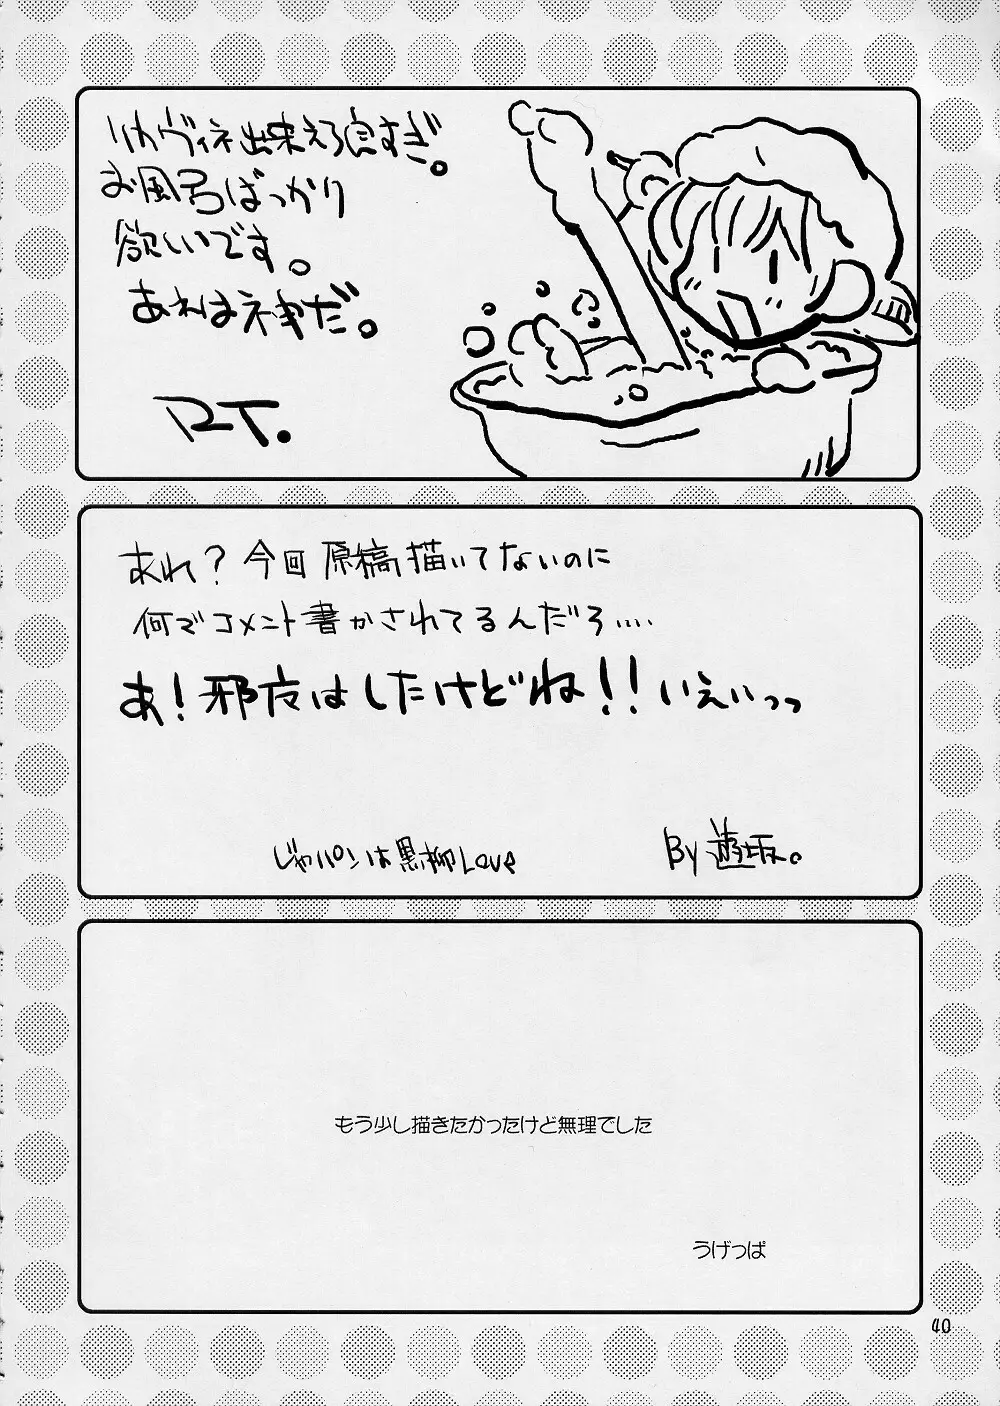 リカヴィネ出来えろ良すぎ。
お風呂ばっかり
欲しいです。
あれは神だ。
RT.
あれ？今回原稿描いてないのに
何でコメント書かされてるんだろ....
あ！邪魔はしたけどね！！いえいっっ
じゃパンは黒柳Love
By 遊坂。
もう少し描きたかったけど無理でした
うげっぱ
40